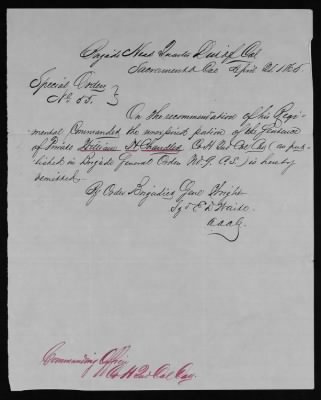 Brigade Head Quarters Dist of Cal
Sacramento Cal April 21 1865
Special Orders
No 55.
On the recommendation of his Regi-
mental Commander the unexpired portion of the Sentence
of Private William H Chandler Co H 2nd Cal Cav (as pub-
lished in Brigade General Orders No 9 C.S.) is hereby
remitted.
By Order Brigadier Genl Wright
Sgd E D Waite
A.A.A.G.
Commanding Officer
Co H 2nd Cal Cav.